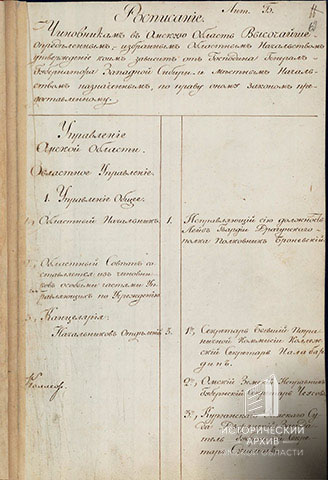 Лит. Б.
Росписаніе.
Чиновникамъ въ Омскую Область Высочайше
опредѣленнымъ, избраннымъ Областнымъ Начальствомъ
утвержденіе коимъ зависитъ отъ Господина Генералъ-
Губернатора Западной Сибири и мѣстнымъ Началь-
ствомъ назначеннымъ, по праву оному закономъ пре-
доставленному.
Управленіе
Омской Области.
Областное Управленіе.
1. Управленіе Общее.
Областный Начальникъ. 1. Исправляющій сію должность
Лейбъ Гвардіи Драгунскаго
полка Полковникъ Броневскій
Областный Совѣтъ со-
ставляется изъ чиновни-
ковъ особыми частями
по Учрежденію
Канцелярія.
Начальниковъ Отдѣленій 3. 1е, Секретарь бывшій
Коммисіи Коллеж-
скій Секретарь
2е, Омскій Земскій Исправникъ
Губернскій Секретарь
3е, Курганскаго
ИСТОРИЧЕСКИЙ
АРХИВ
ОМСКОЙ ОБЛАСТИ